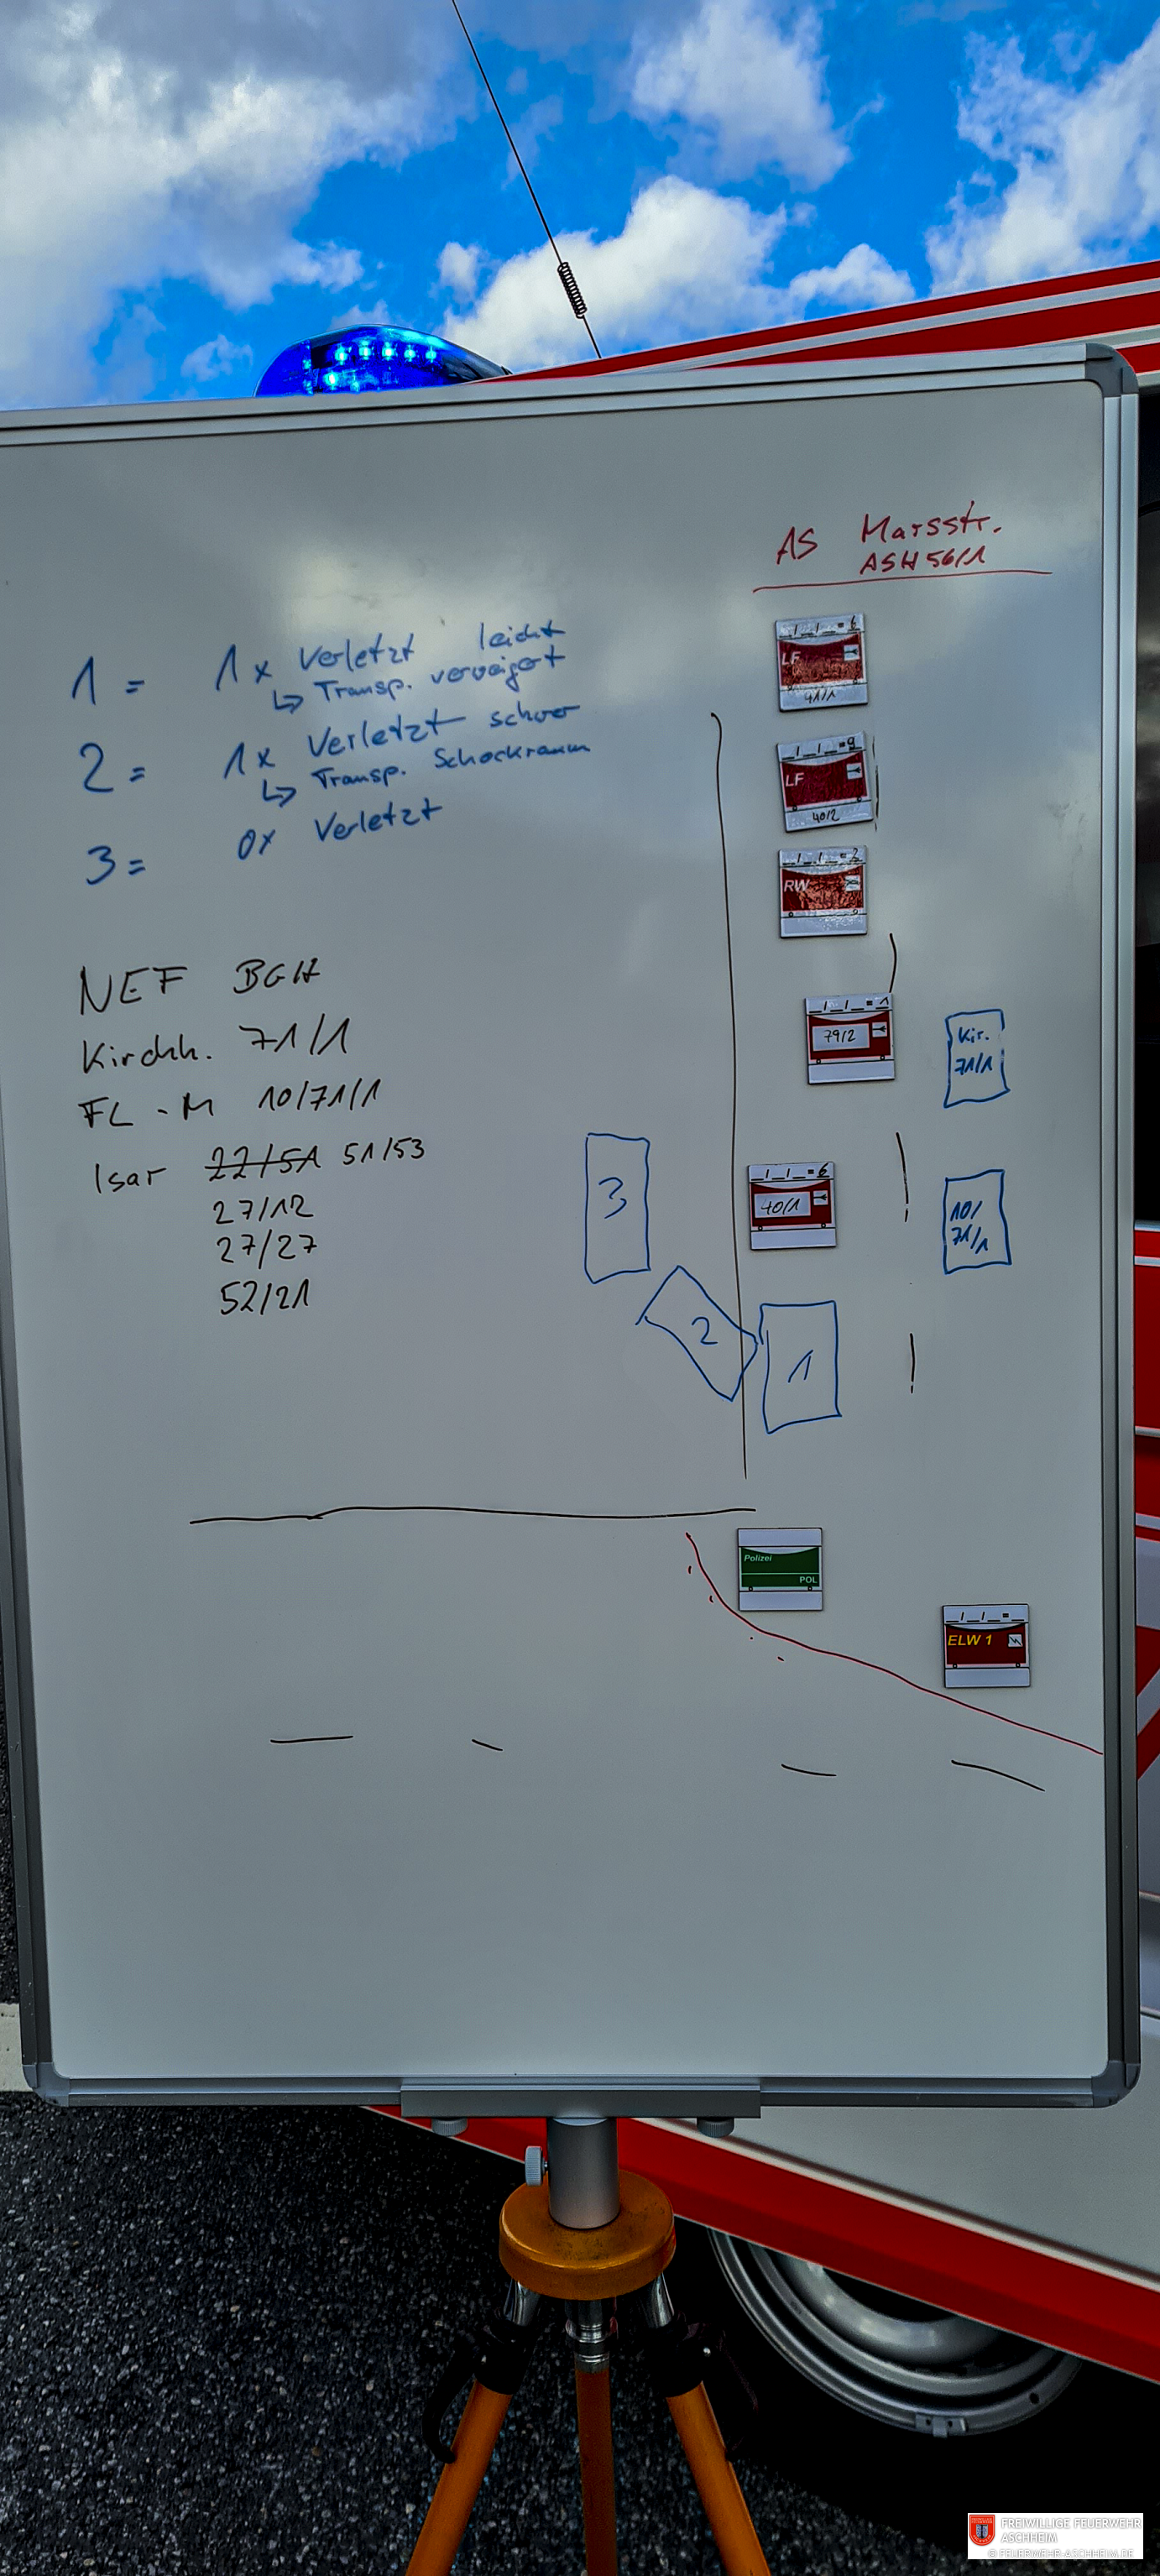 AS Marsstr.
ASH 56/1
1 = 1x Verletzt leicht
↳ Transp. verweigert
2 = 1x Verletzt schwer
↳ Transp. Schockraum
3 = 0x Verletzt
NEF BGH
Kirchh. 71/1
FL - M 10/71/1
Isar 22/51 51/53
27/12
27/27
52/21
_/_/_=6
LF
41/1
_/_/_=9
LF
40/2
_/_/_=2
RW
_/_/_=1
79/2
Kir.
71/1
_/_/_=6
40/1
10/
71/1
3
2
1
Polizei
POL
_/_/_=_
ELW 1
FREIWILLIGE FEUERWEHR
ASCHHEIM
© FEUERWEHR-ASCHHEIM.DE